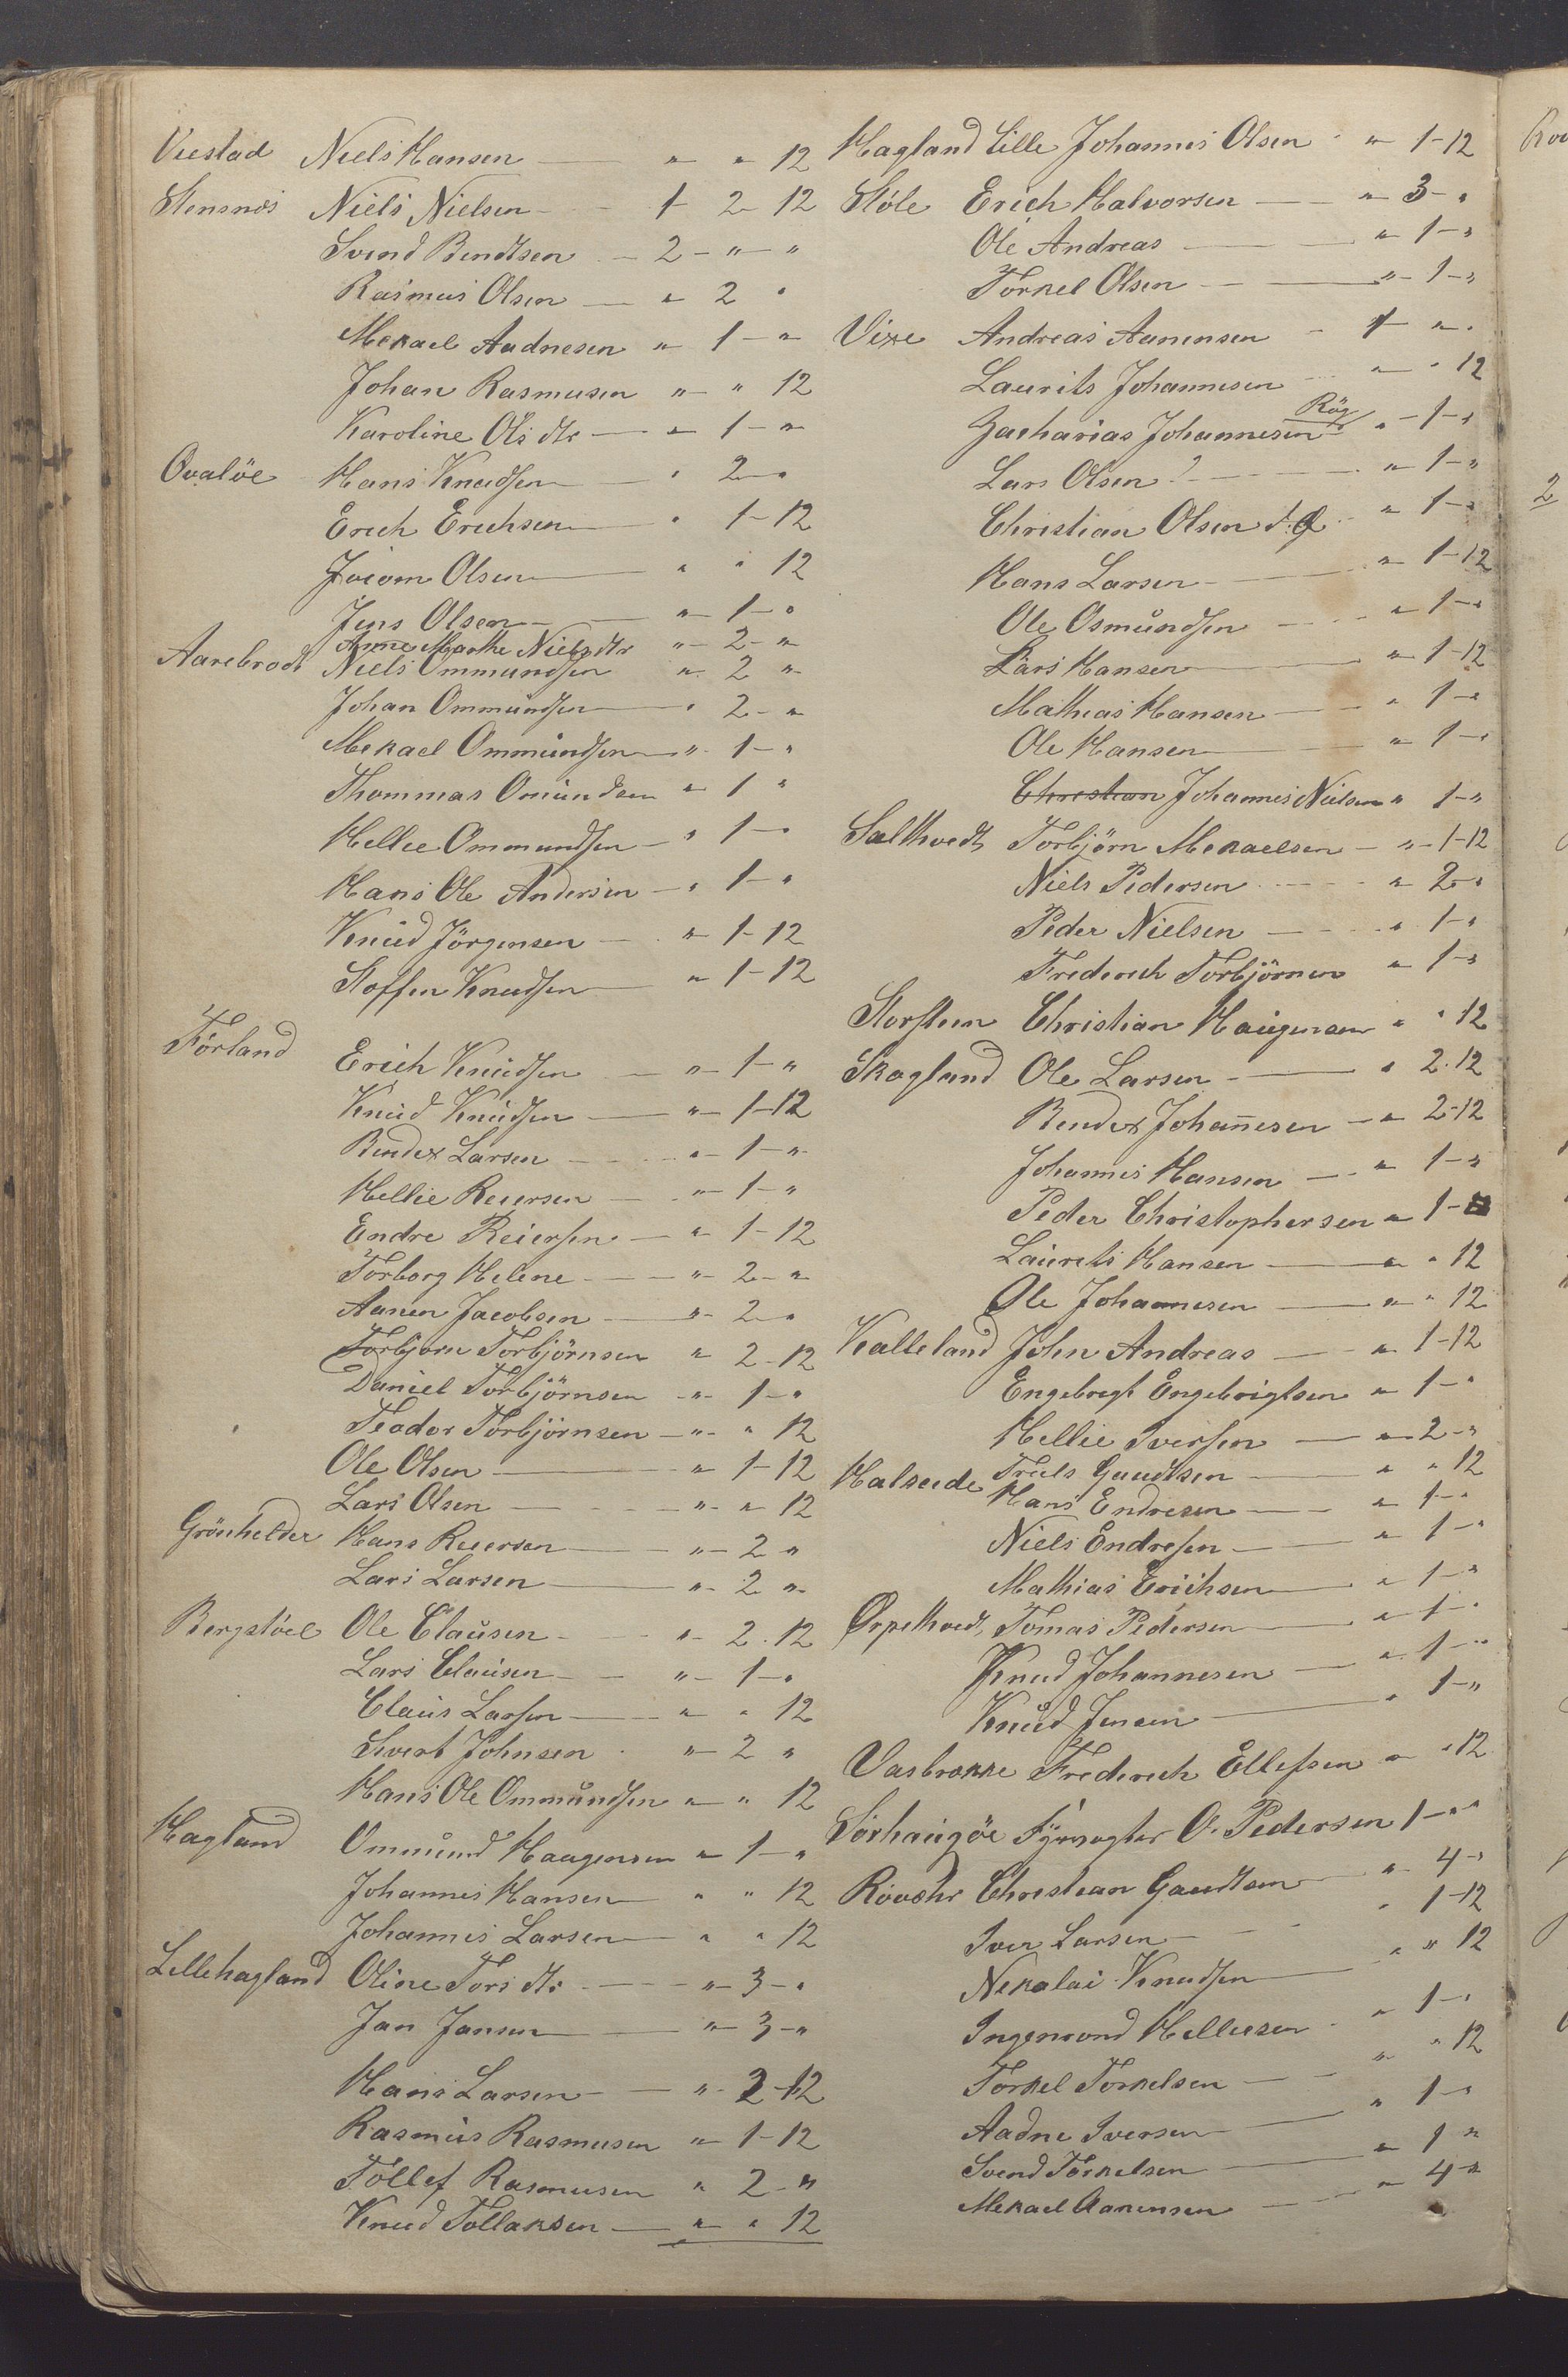 Viestad Niels Hansen — " " 12
Stensnös Niels Nielsen — 1 2 12
Svend Bendtsen — 2 - " - "
Rasmus Olsen — " 2 "
Mekael Aadnesen " 1 - "
Johan Rasmusen " - " 12
Karoline Ols dtr — " 1 - "
Ovalöe Hans Knudsen — " 2 - "
Erich Erichsen — " 1 - 12
Joiom Olsen — " " 12
Jens Olsen — " 1 - "
Anne Marthe Niels dtr " - 2 - "
Aarebrodt Niels Ommundsen " 2 "
Johan Ommundsen — " 2 - "
Mekael Ommundsen — " 1 - "
Thommas Omundsen " 1 "
Hellee Ommundsen — " 1 - "
Hans Ole Andersen — " 1 - "
Knud Jörgensen — " 1 - 12
Stoffen Knudsen — " 1 - 12
Förland Erich Knudsen — " 1 - "
Knud Knudsen — " 1 - 12
Bendex Larsen — " 1 - "
Hellie Reiersen — " 1 - "
Endre Reiersen — " 1 - 12
Torborg Helene — " 2 - "
Aanen Jacobsen — " 2 "
Torbjørn Torbjörnsen " 2 - 12
Daniel Torbjörnsen — " 1 - "
Teodor Torbjörnsen — " " 12
Ole Olsen — " 1 - 12
Lars Olsen — " " 12
Grönhelder Hans Reiersen — " 2 "
Lars Larsen — " 2 "
Bergstöel Ole Clausen — " 2 . 12
Lars Clausen — " 1 - "
Claus Larsen — " " 12
Sivert Johnsen . " 2 "
Hans Ole Ommundsen " " 12
Hagland Ommund Haugensen " 1 - "
Johannes Hansen — " " 12
Johannes Larsen — " " 12
Lillehagland Oline Tors dtr — " 3 - "
Jan Jansen — " 3 - "
Hans Larsen — " 2 - 12
Rasmus Rasmusen " 1 - 12
Töllef Rasmusen " 2 - "
Knud Tollaksen — " " 12
Hagland Lille Johannes Olsen " 1 - 12
Stöle Erich Halvorsen — " 3 - "
Ole Andreas — " 1 - "
Torkel Olsen — " 1 - "
Vixe Andreas Aanensen - 1 " "
Laurits Johannesen " " 12
Zacharias Johannesen Rög " - 1 - "
Lars Olsen ? — " 1 - "
Christian Olsen d. Q. " 1 - "
Hans Larsen — " 1 - 12
Ole Osmundsen — " 1 - "
Lars Hansen — " 1 - 12
Mathias Hansen — " 1 - "
Ole Hansen — " 1 - "
Christian Johannes Nielsen " 1 - "
Salthvedt Torbjörn Mekaelsen — " 1 - 12
Niels Pedersen — " 2 - "
Peder Nielsen — " 1 - "
Frederich Torbjörnsen " 1 - "
Storsteen Christian Haugensen " " 12
Skogland Ole Larsen — " 2 . 12
Bendex Johannesen — " 2 - 12
Johannes Hansen — " 1 - "
Peder Christophersen " 1 -
Laurets Hansen — " " 12
Ole Johannesen — " " 12
Kalleland John Andreas — " 1 - 12
Engebregt Engebrigtsen " 1 - "
Hellie Iversen — " 2 - "
Halseide Truls Gaudtsen — " " 12
Hans Endresen — " 1 - "
Niels Endresen — " 1 - "
Mathias Erichsen — " 1 - "
Ørpethvedt Tomas Pedersen — " 1 - "
Knud Johannesen — " 1 - "
Knud Jensen — " 1 - "
Vasbrekke Frederich Ellefsen " " 12
Sörhaugöe Fyrvogter O. Pedersen 1 - " "
Rövøhr Christian Gaudtsen — " 4 - "
Iver Larsen — " 1 - 12
Nekolai Knudsen — " " 12
Ingemond Hellesen " 1 - "
Torkel Torkelsen — " " 12
Aadne Iversen — " 1 - "
Svend Torkelsen — " 1 "
Mekael Aanensen — " 4 - "
2